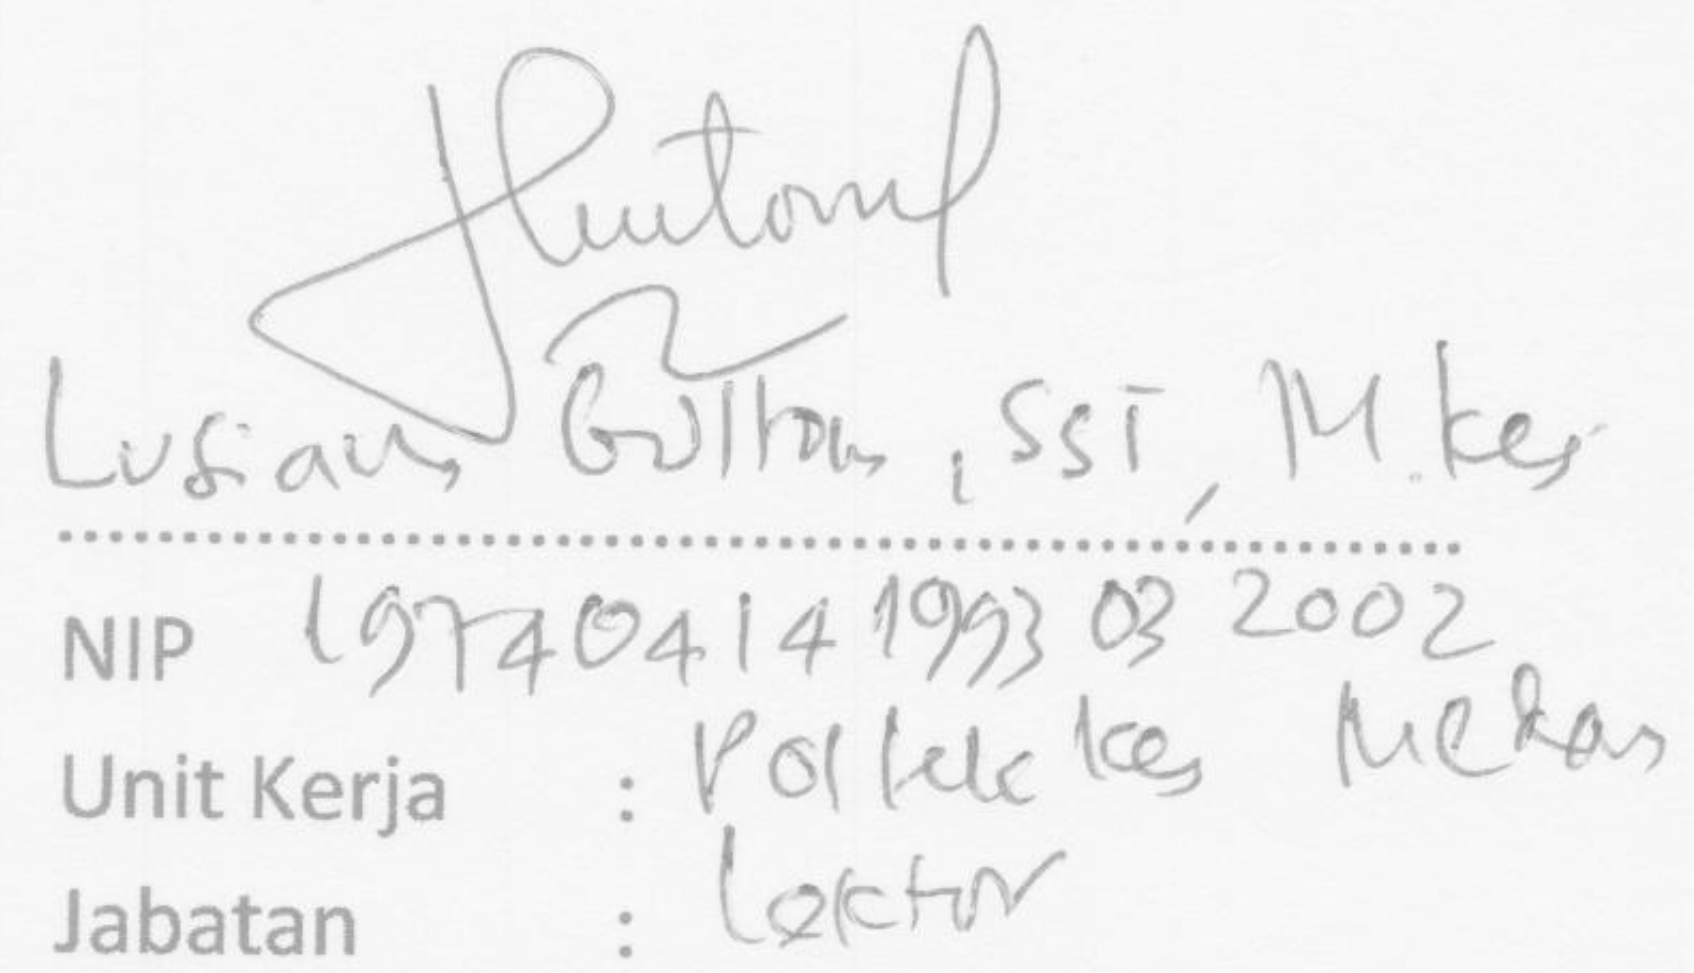 Lusiana Gultom, SST, M.Kes
NIP 19740414 1993 03 2002
Unit Kerja : Poltekkes Medan
Jabatan : Lektor